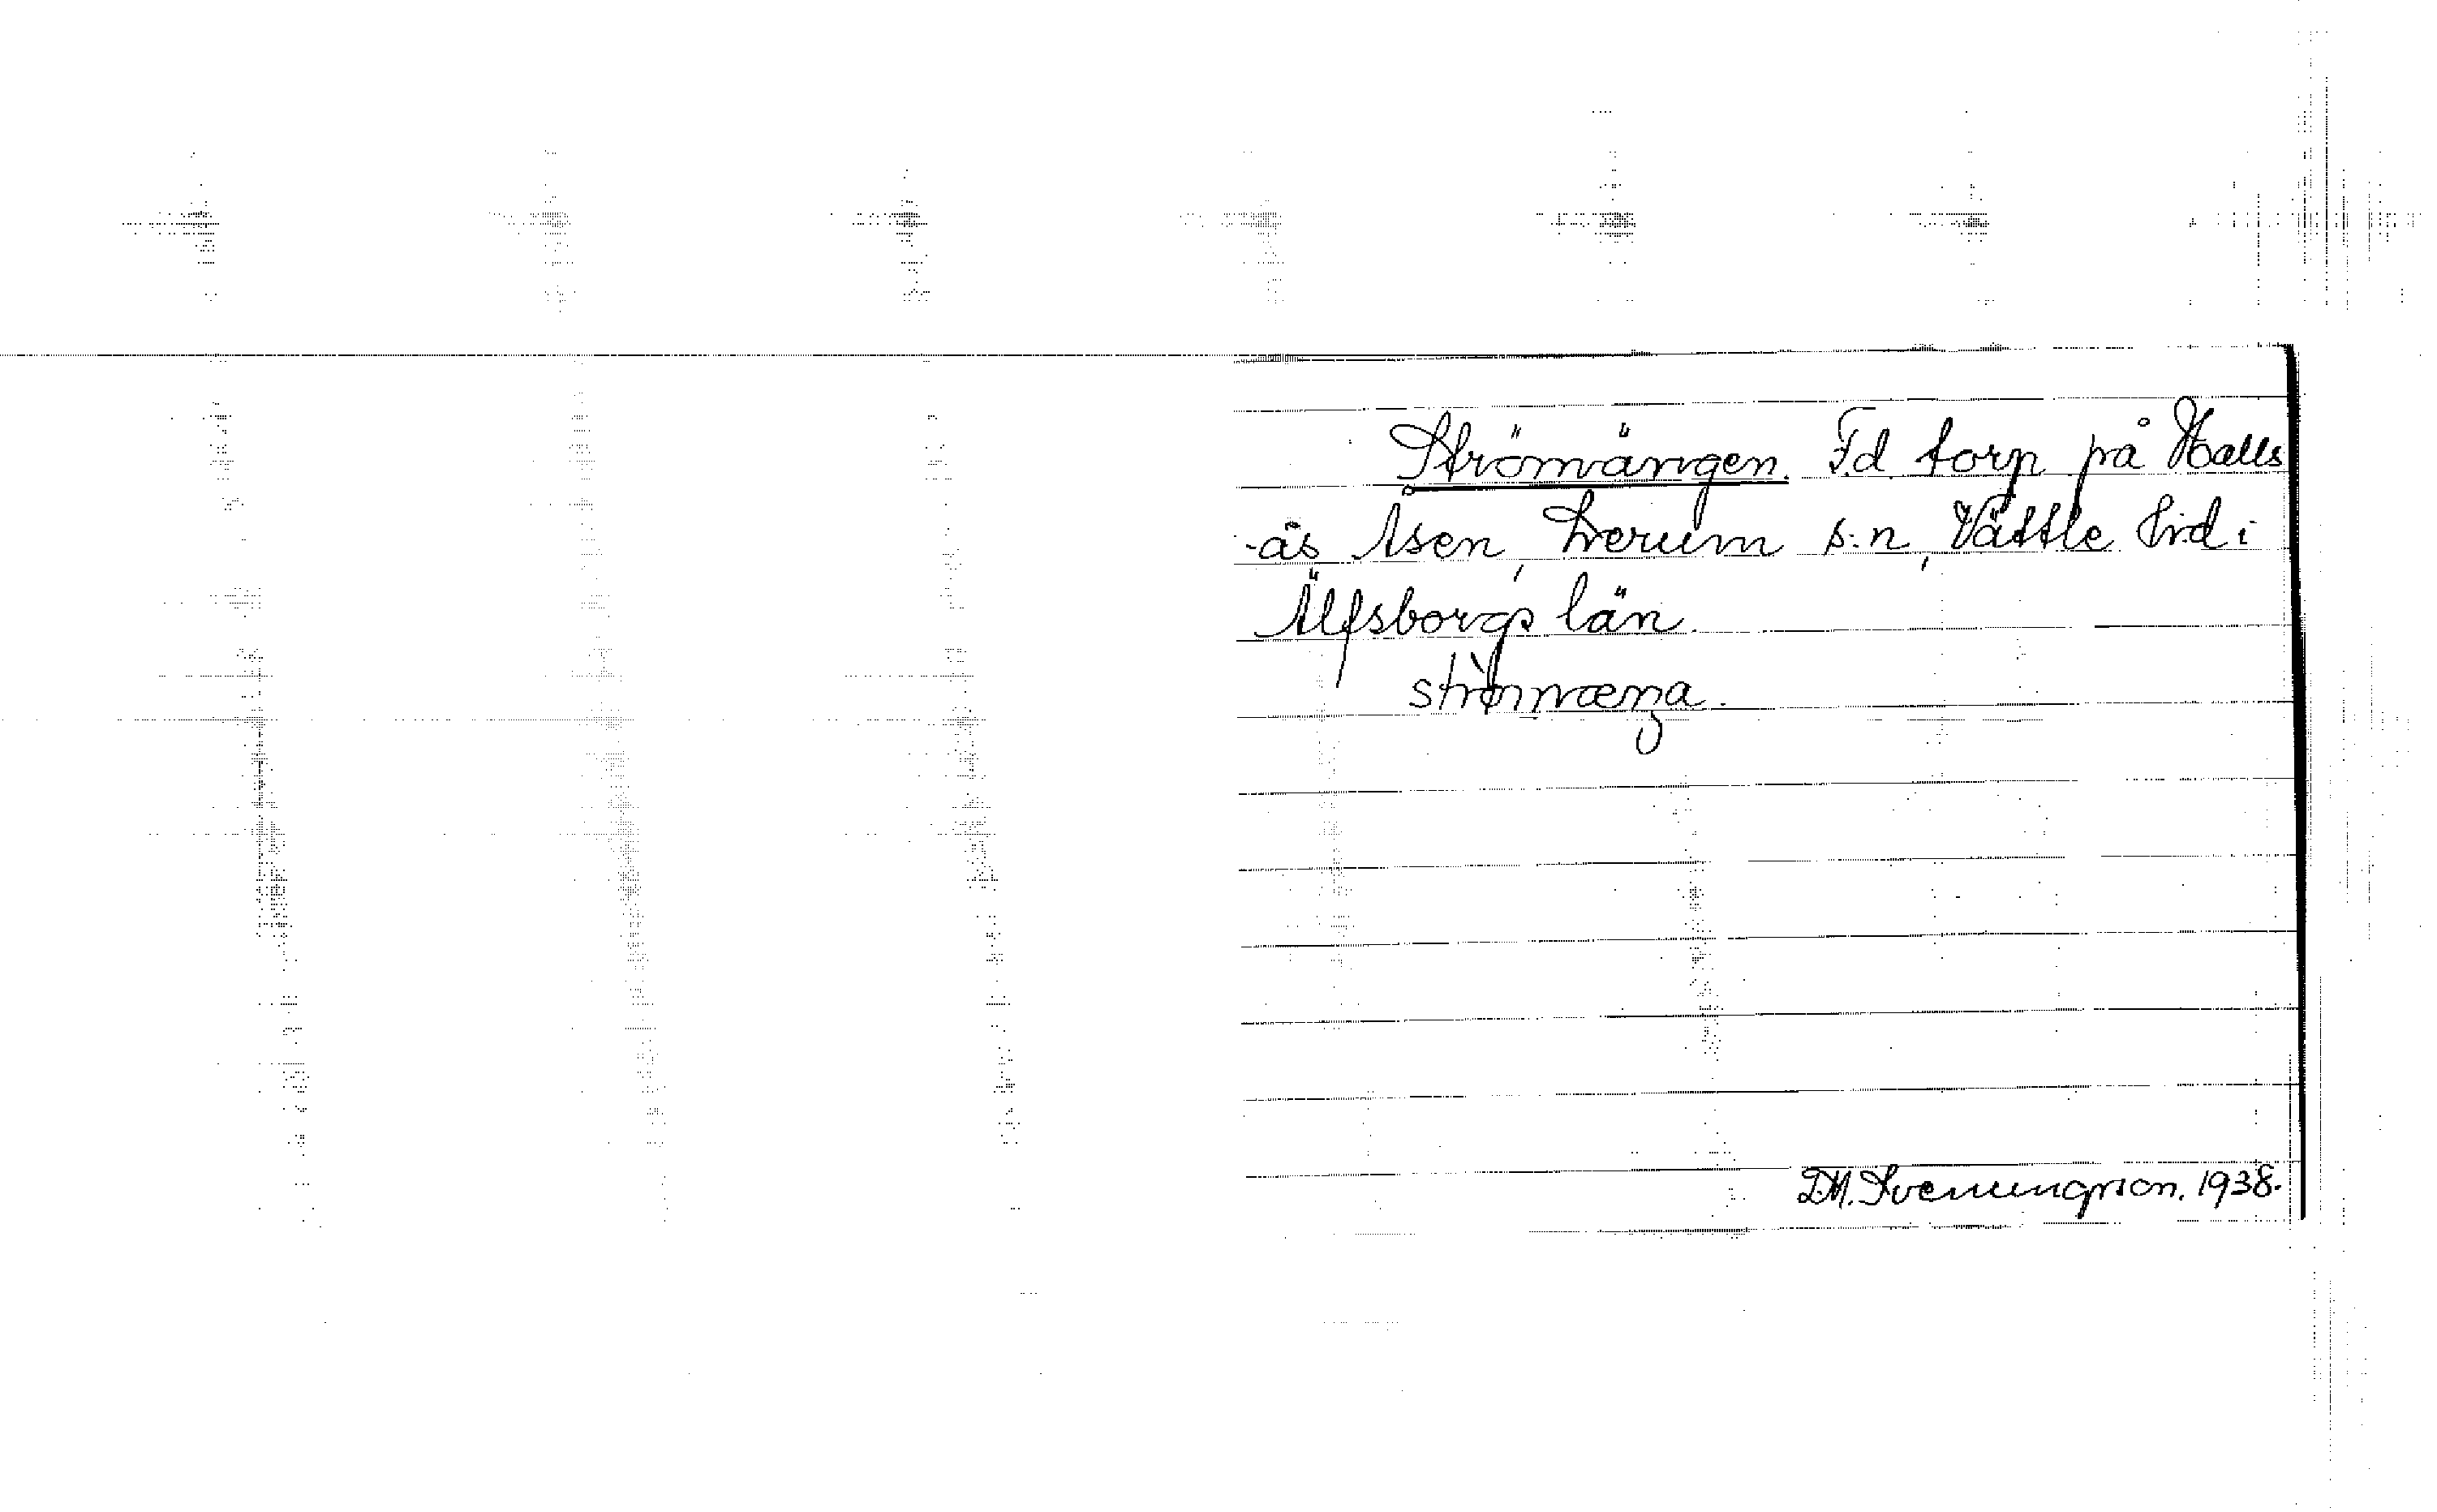 Strömängen. F.d torp på Halls
-ås Åsen, Lerum s:n, Vättle hd i
Älfsborgs län.
strömæŋa.
1938.